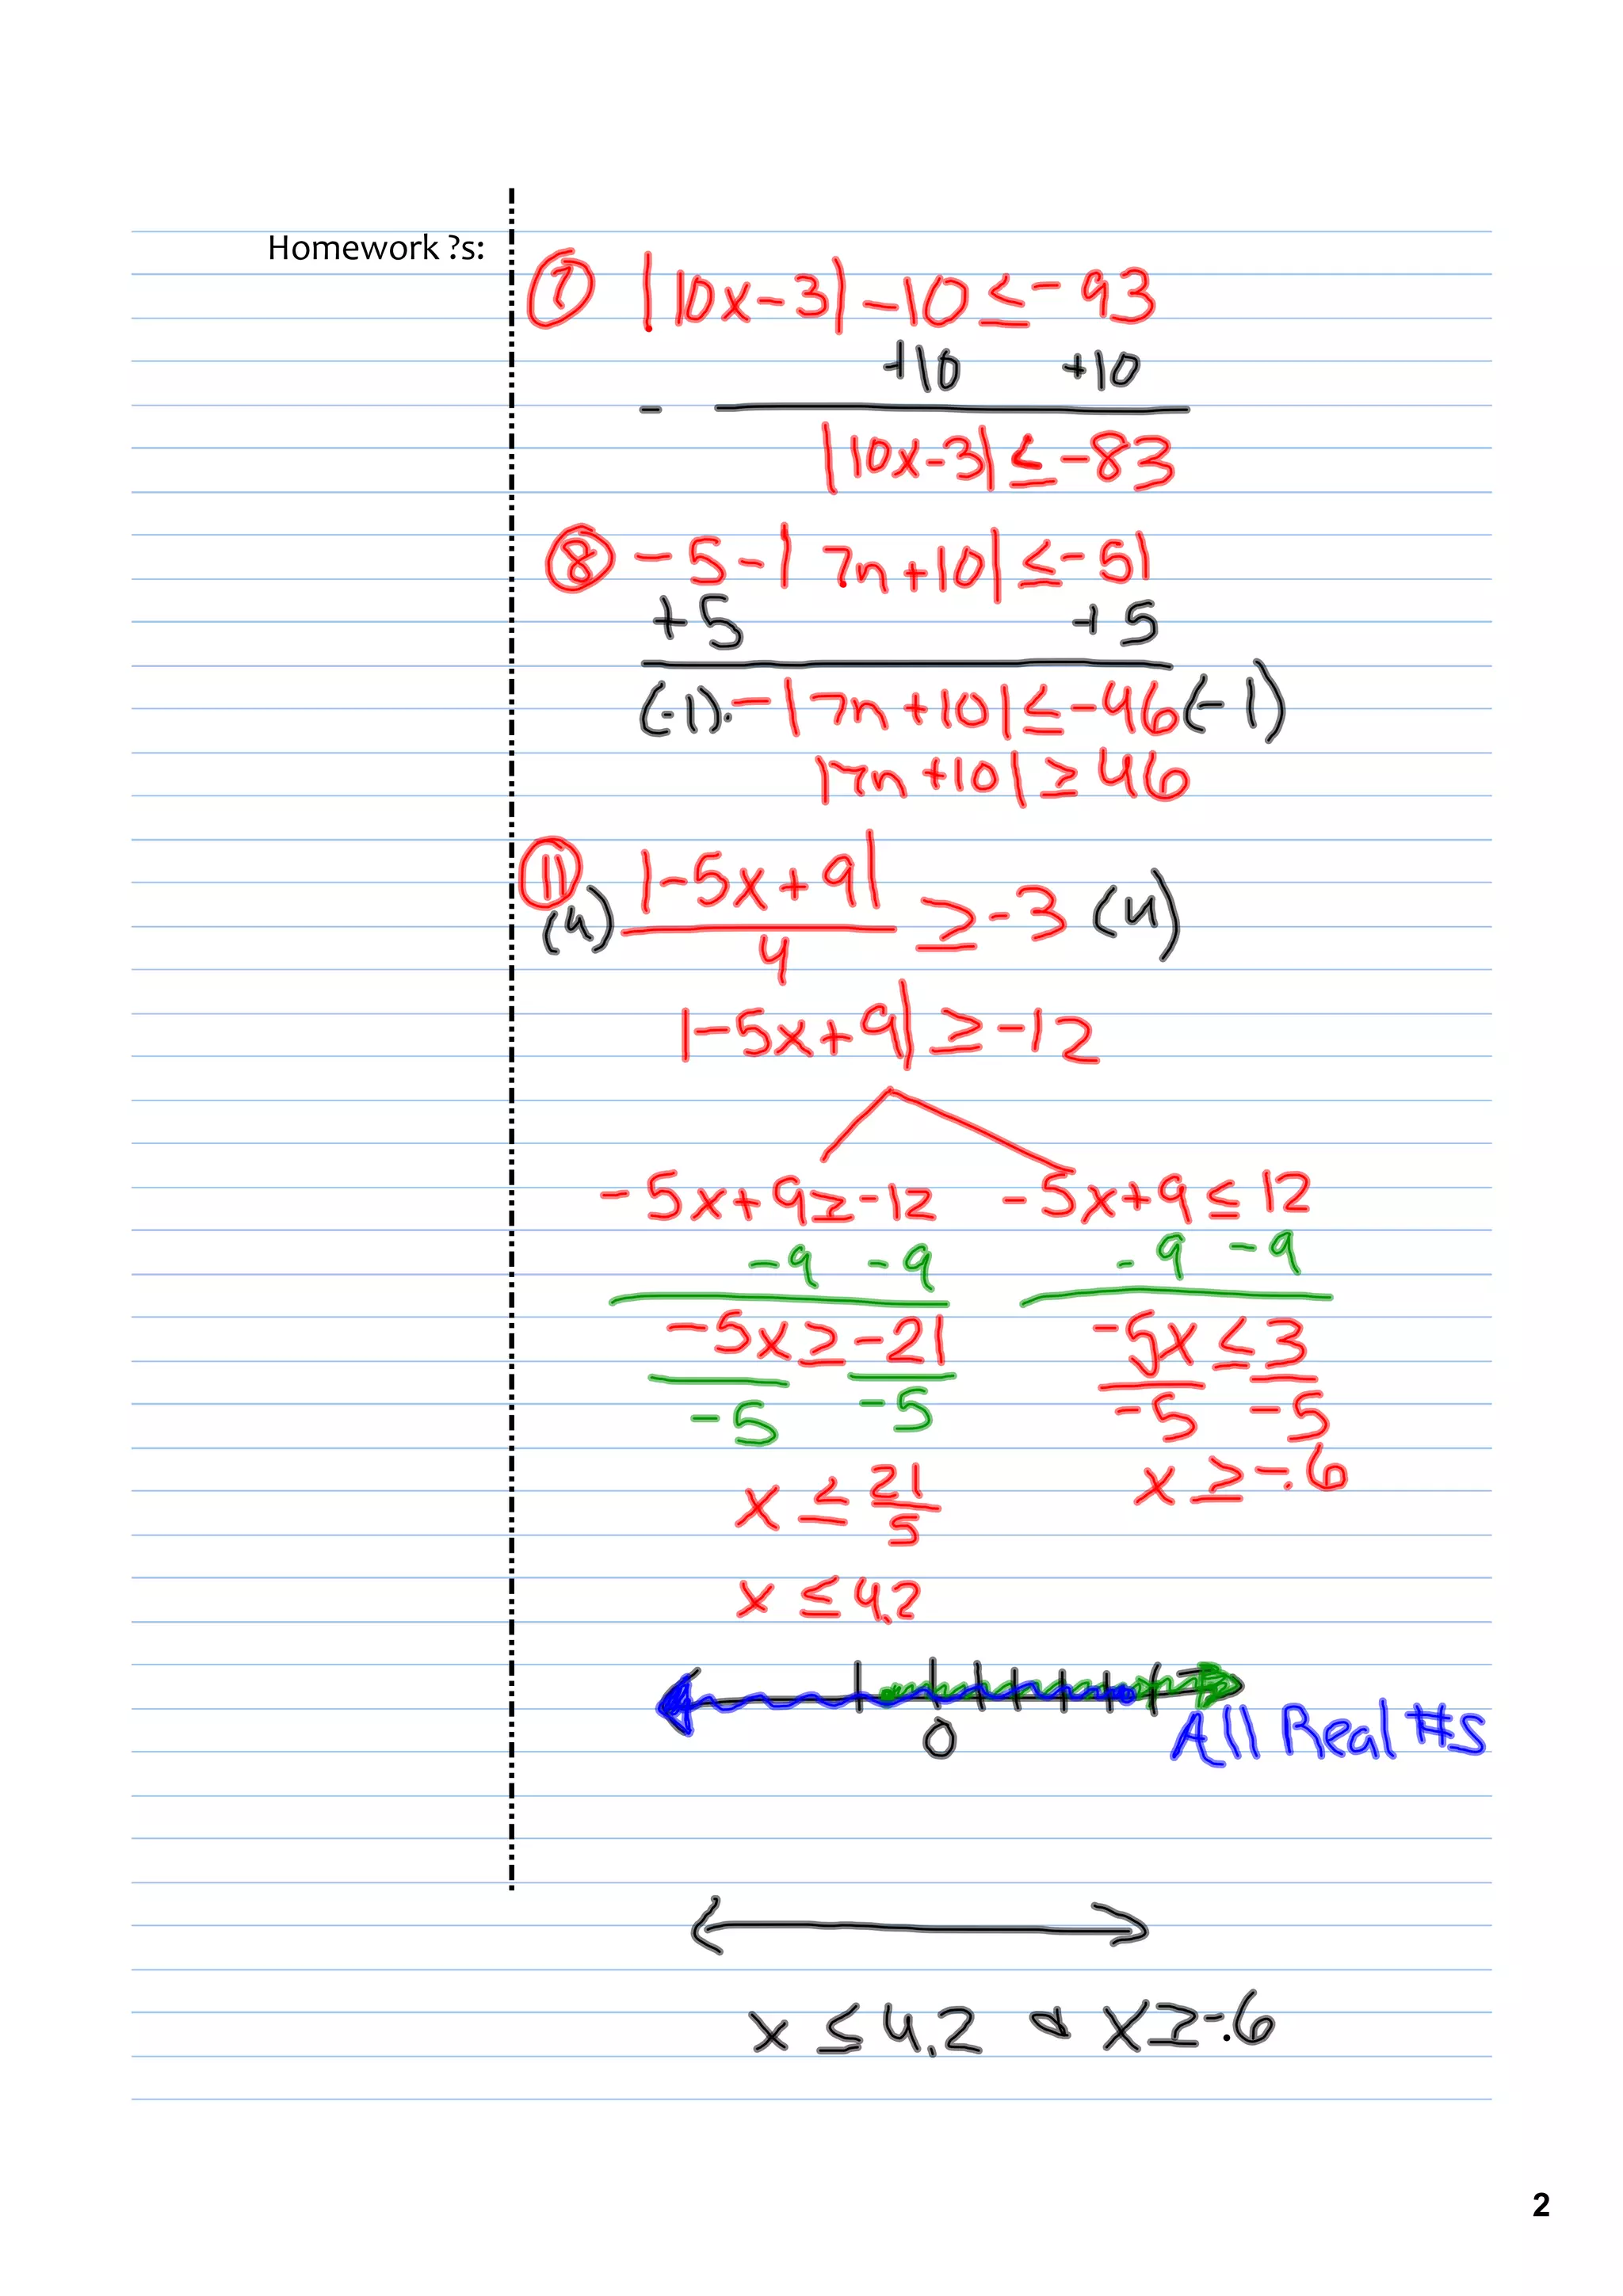 Homework ?s:
⑦ |10x-3|-10≤-93
+10 +10
-
|10x-3|≤-83
⑧ -5-|7n+10|≤-51
+5 +5
(-1)·-|7n+10|≤-46(-1)
|7n+10|≥46
⑪ |-5x+9|
(4) ≥-3 (4)
4
|-5x+9|≥-12
-5x+9≥-12 -5x+9≤12
-9 -9 -9 -9
-5x≥-21 -5x≤3
-5 -5 -5 -5
x≤21/5 x≥-.6
x≤4.2
0 All Real #s
x≤4.2 & x≥-.6
2